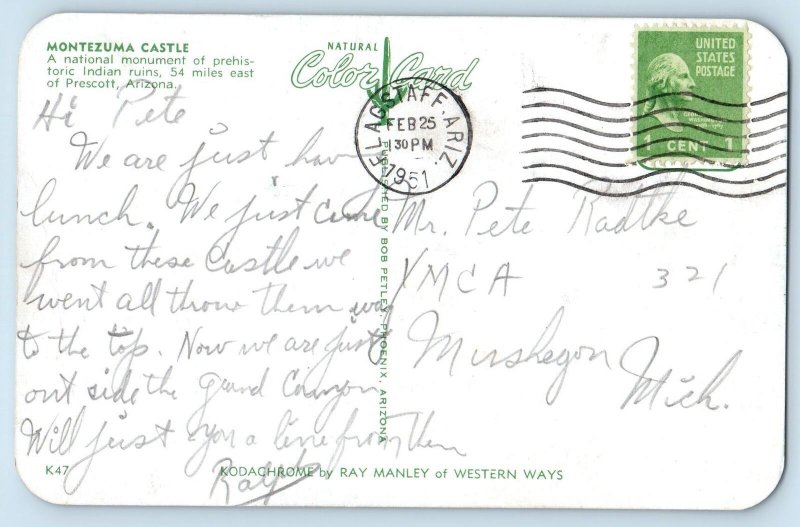 MONTEZUMA CASTLE
A national monument of prehis-
toric Indian ruins, 54 miles east
of Prescott, Arizona.
NATURAL
Color Card
FLAGSTAFF, ARIZ
FEB 25
130 PM
1951
UNITED
STATES
POSTAGE
GEORGE
WASHINGTON
1 CENT 1
Hi Pete
We are just have
lunch. We just came
from these Castle we
went all throw them way
to the top. Now we are just
out side the grand Canyon
Will just you a line from them
Ralph
PUBLISHED BY BOB PETLEY, PHOENIX, ARIZONA
Mr. Pete Radtke
YMCA 321
Muskegon
Mich.
K47
KODACHROME by RAY MANLEY of WESTERN WAYS